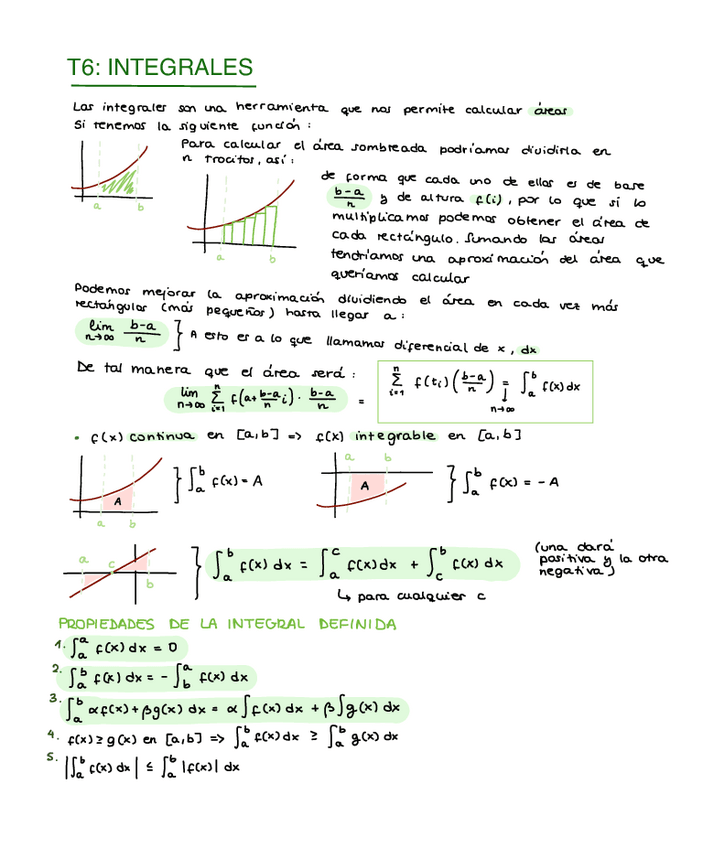 T6: INTEGRALES
Las integrales son una herramienta que nos permite calcular áreas
Si tenemos la siguiente función:
Para calcular el área sombreada podríamos dividirla en
n trocitos, así:
a b
a b
de forma que cada uno de ellos es de base
b-a/n y de altura f(i), por lo que si lo
multiplicamos podemos obtener el área de
cada rectángulo. Sumando las áreas
tendríamos una aproximación del área que
queríamos calcular
Podemos mejorar la aproximación dividiendo el área en cada vez más
rectángulos (más pequeños) hasta llegar a:
lim n→∞ b-a/n } A esto es a lo que llamamos diferencial de x, dx
De tal manera que el área será:
lim n→∞ ∑ i=1 n f(a+b-a/n i) · b-a/n = ∑ i=1 n f(ti)(b-a/n) = ∫ₐᵇ f(x) dx
n→∞
• f(x) continua en [a,b] => f(x) integrable en [a,b]
a b A } ∫ₐᵇ f(x) = A
a b A } ∫ₐᵇ f(x) = -A
a c b } ∫ₐᵇ f(x) dx = ∫ₐᶜ f(x) dx + ∫꜀ᵇ f(x) dx
↳ para cualquier c
(una dará
positiva y la otra
negativa)
PROPIEDADES DE LA INTEGRAL DEFINIDA
1. ∫ₐᵃ f(x) dx = 0
2. ∫ₐᵇ f(x) dx = - ∫_b^a f(x) dx
3. ∫ₐᵇ αf(x)+βg(x) dx = α∫f(x) dx + β∫g(x) dx
4. f(x) ≥ g(x) en [a,b] => ∫ₐᵇ f(x) dx ≥ ∫ₐᵇ g(x) dx
5. |∫ₐᵇ f(x) dx| ≤ ∫ₐᵇ |f(x)| dx